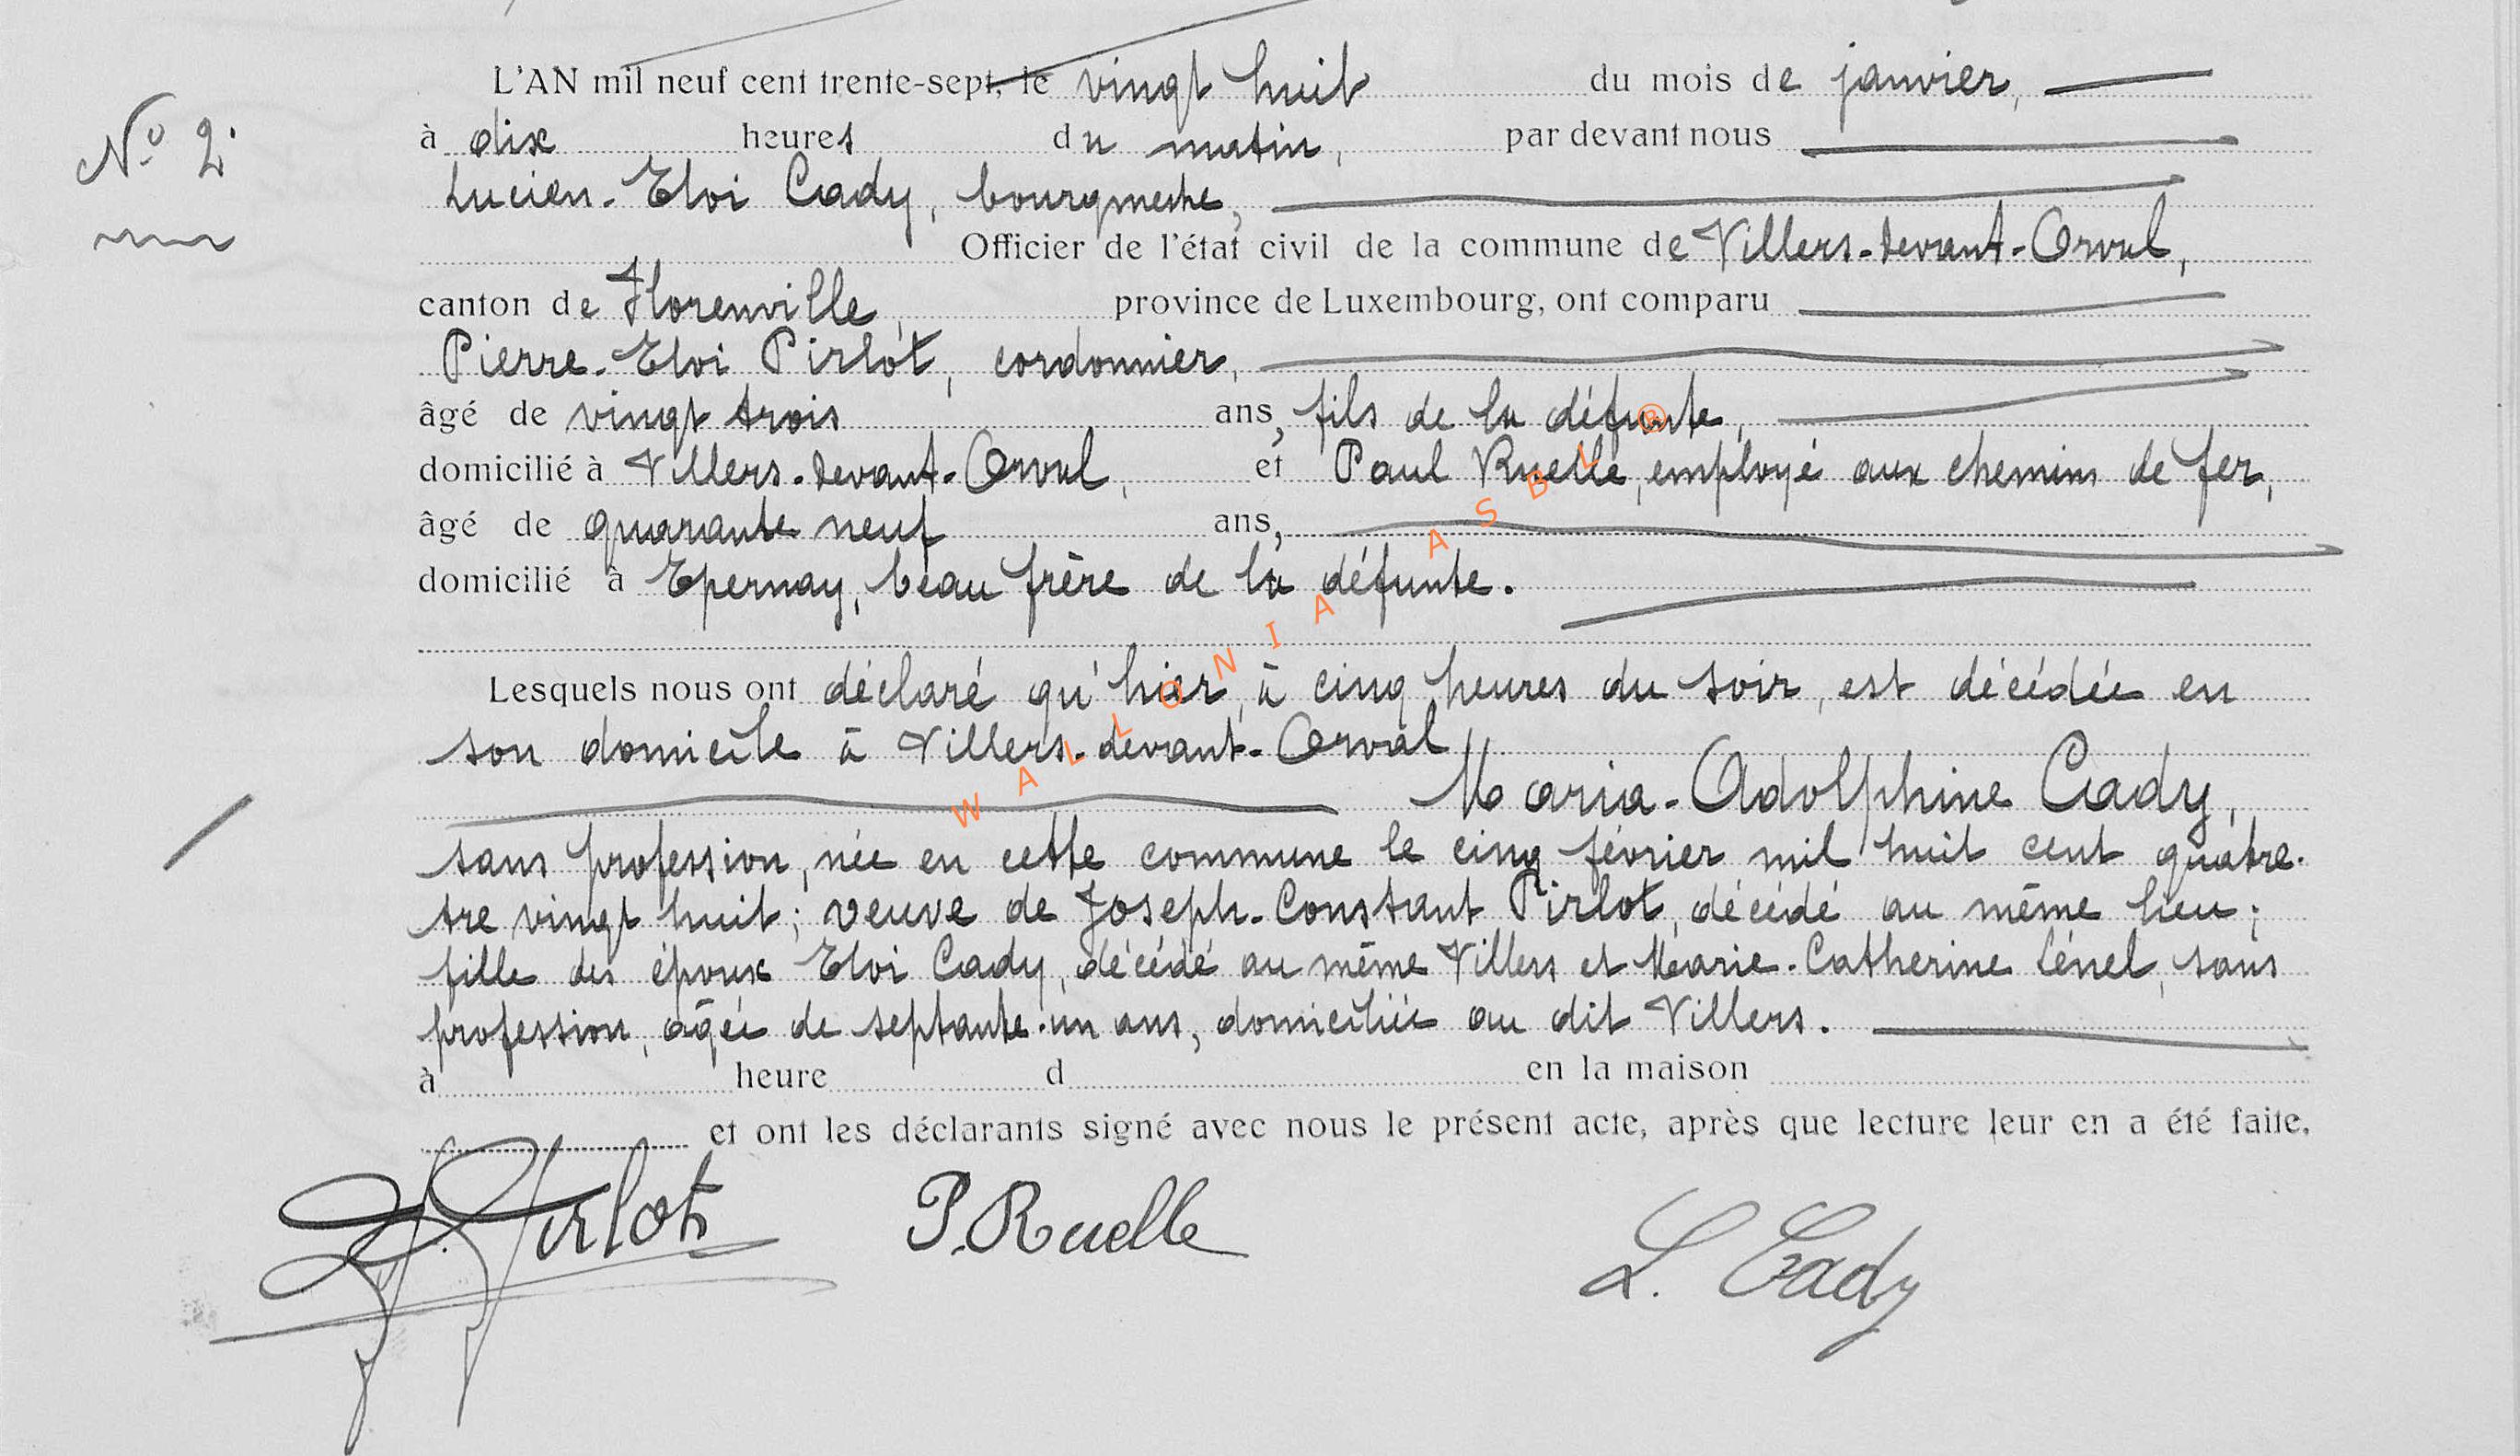 L'AN mil neuf cent trente-sept, le vingt huit du mois de janvier,
N° 2.
à dix heures du matin, par devant nous
Lucien-Eloi Cady, bourgmestre,
Officier de l'état civil de la commune de Villers-devant-Orval,
canton de Florenville, province de Luxembourg, ont comparu
Pierre-Eloi Pirlot, cordonnier,
âgé de vingt trois ans, fils de la défunte,
domicilié à Villers-devant-Orval, et Paul Ruelle, employé aux chemins de fer,
âgé de quarante neuf ans,
domicilié à Epernay, beau frère de la défunte.
Lesquels nous ont déclaré qu'hier, à cinq heures du soir, est décédée en
son domicile à Villers-devant-Orval
Maria-Adolphine Cady,
sans profession, née en cette commune le cinq février mil huit cent quatre-
tre vingt huit; veuve de Joseph-Constant Pirlot, décédé au même lieu;
fille des époux Eloi Cady, décédé au même Villers et Marie-Catherine Lénel, sans
profession, âgée de septante-un ans, domiciliée au dit Villers.
à heure d en la maison
et ont les déclarants signé avec nous le présent acte, après que lecture leur en a été faite.
Pirlot P. Ruelle L. Cady
WALLONIA ASBL ®